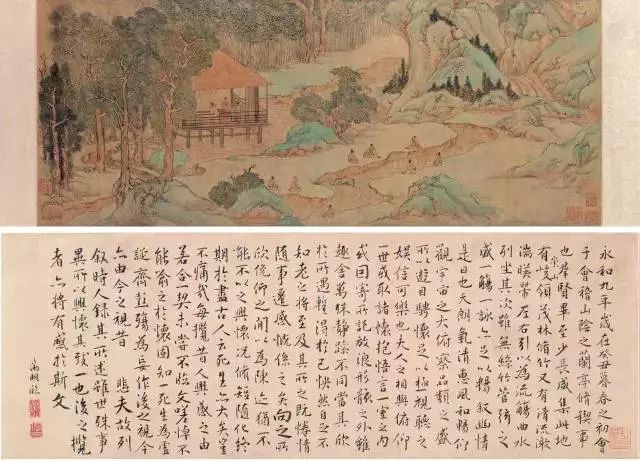 永和九年歲在癸丑暮春之初會
于會稽山陰之蘭亭脩稧事
也羣賢畢至少長咸集此地
有崇山峻領茂林脩竹又有清流激
湍暎帶左右引以為流觴曲水
列坐其次雖無絲竹管弦之
盛一觴一詠亦足以暢叙幽情
是日也天朗氣清惠風和暢仰
觀宇宙之大俯察品類之盛
所以遊目騁懷足以極視聽之
娛信可樂也夫人之相與俯仰
一世或取諸懷抱悟言一室之內
或因寄所託放浪形骸之外雖
趣舍萬殊靜躁不同當其欣
於所遇蹔得於己快然自足不
知老之將至及其所之既惓情
隨事遷感慨係之矣向之所
欣俛仰之間以為陳迹猶不
能不以之興懷況脩短隨化終
期於盡古人云死生亦大矣豈
不痛哉每攬昔人興感之由
若合一契未嘗不臨文嗟悼不
能喻之於懷固知一死生為虛
誕齊彭殤為妄作後之視今
亦由今之視昔 悲夫故列
叙時人錄其所述雖世殊事
異所以興懷其致一也後之攬
者亦將有感於斯文
徵明臨